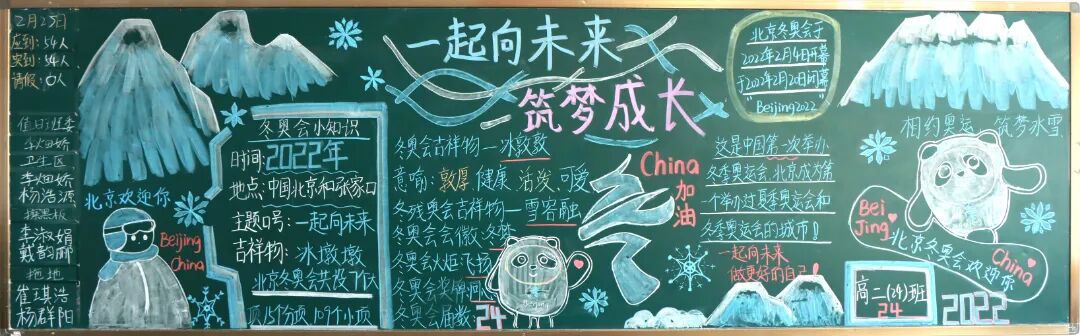 2月25日
应到:54人
实到:54人
请假:0人
值日班委
卫生区
杨浩源
擦黑板
李淑娟
戴韵郦
拖地
崔琪浩
杨群阳
北京欢迎你
Beijing
China
冬奥会小知识
时间:2022年
地点:中国北京和张家口
主题口号:一起向未来
吉祥物:冰墩墩
北京冬奥会共设7个大
项15个分项109个小项
一起向未来
筑梦成长
冬奥会吉祥物—冰墩墩
意喻:敦厚 健康 活泼 可爱
冬残奥会吉祥物—雪容融
冬奥会会徽:冬梦
冬奥会火炬:飞扬
冬奥会奖牌:同心
冬奥会届数:24
Beijing
China
加油
北京冬奥会于
2022年2月4日开幕
于2022年2月20日闭幕
"Beijing2022"
这是中国第一次举办
冬季奥运会,北京成为第
一个举办过夏季奥运会和
冬季奥运会的城市!
一起向未来
做更好的自己!
相约奥运 筑梦冰雪
Bei
Jing
北京冬奥会欢迎你
China
高二(24)班
24
2022